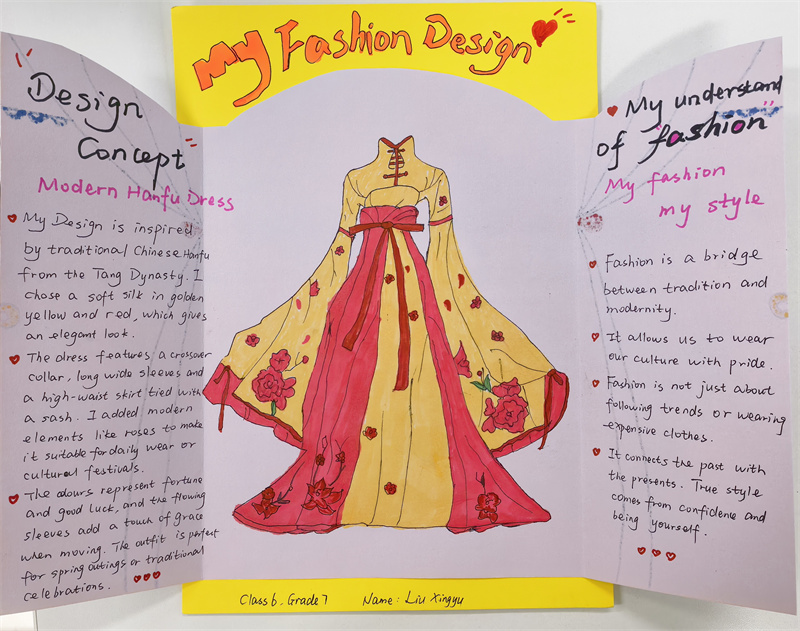 My Fashion Design
Design
Concept
Modern Hanfu Dress
My Design is inspired
by traditional Chinese Hanfu
from the Tang Dynasty. I
chose a soft silk in golden
yellow and red, which gives
an elegant look.
The dress features a crossover
collar, long wide sleeves and
a high-waist skirt tied with
a sash. I added modern
elements like roses to make
it suitable for daily wear or
cultural festivals.
The colours represent fortune
and good luck, and the flowing
sleeves add a touch of grace
when moving. The outfit is perfect
for spring outings or traditional
celebrations.
My understand
of "fashion"
My fashion
my style
Fashion is a bridge
between tradition and
modernity.
It allows us to wear
our culture with pride.
Fashion is not just about
following trends or wearing
expensive clothes.
It connects the past with
the presents. True style
comes from confidence and
being yourself.
Class 6, Grade 7 Name: Liu Xingyu